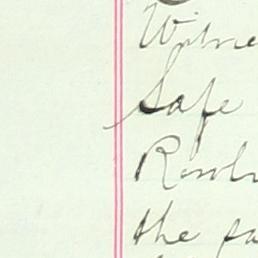 Witne
Safe
Resolv
the sa